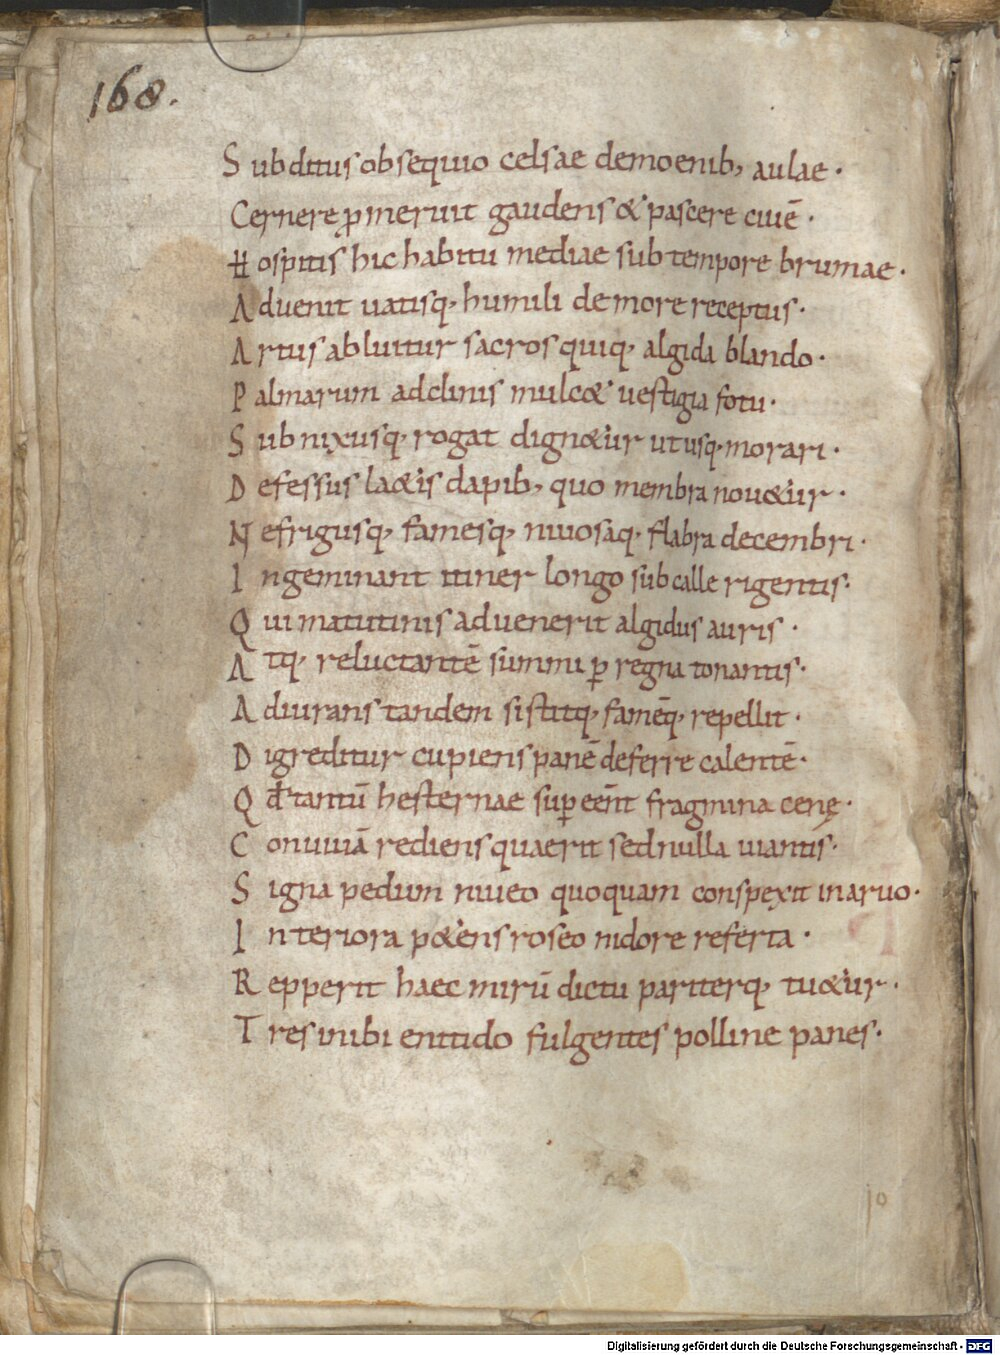 168.
Subditus obsequio celsae demoenib; aulae·
Cernere ꝑmeruit gaudens & pascere ciuē·
Hospitis hic habitu mediae sub tempore brumae·
Aduenit uatisq; humili de more receptus·
Artus abluitur sacros quiq; algida blando·
Palmarum adclinis mulc& uestigia fotu·
Subnixusq; rogat dign&ur ut usq; morari·
Defessus la&is dapib; quo membra nou&ur·
Ne frigusq; famesq; niuosaq; flabra decembri·
Ingeminant itiner longo sub calle rigentis·
Qui matutinis aduenerit algidus auris·
Atq; reluctantē summi ꝑ regna tonantis·
Adiurans tandem sistitq; famēq; repellit·
Digreditur cupiens panē deferre calentē·
Qđ tantū hesternae suꝑeēnt fragmina cenę·
Conuiuiā rediens quaerit sed nulla uiantis·
Signa pedum niueo quoquam conspexit in aruo·
Interiora p&ens roseo nidore referta·
Repperit haec mirū dictu pariterq; tu&ur·
Tres inibi entido fulgentes polline panes·
10
Digitalisierung gefördert durch die Deutsche Forschungsgemeinschaft - DFG